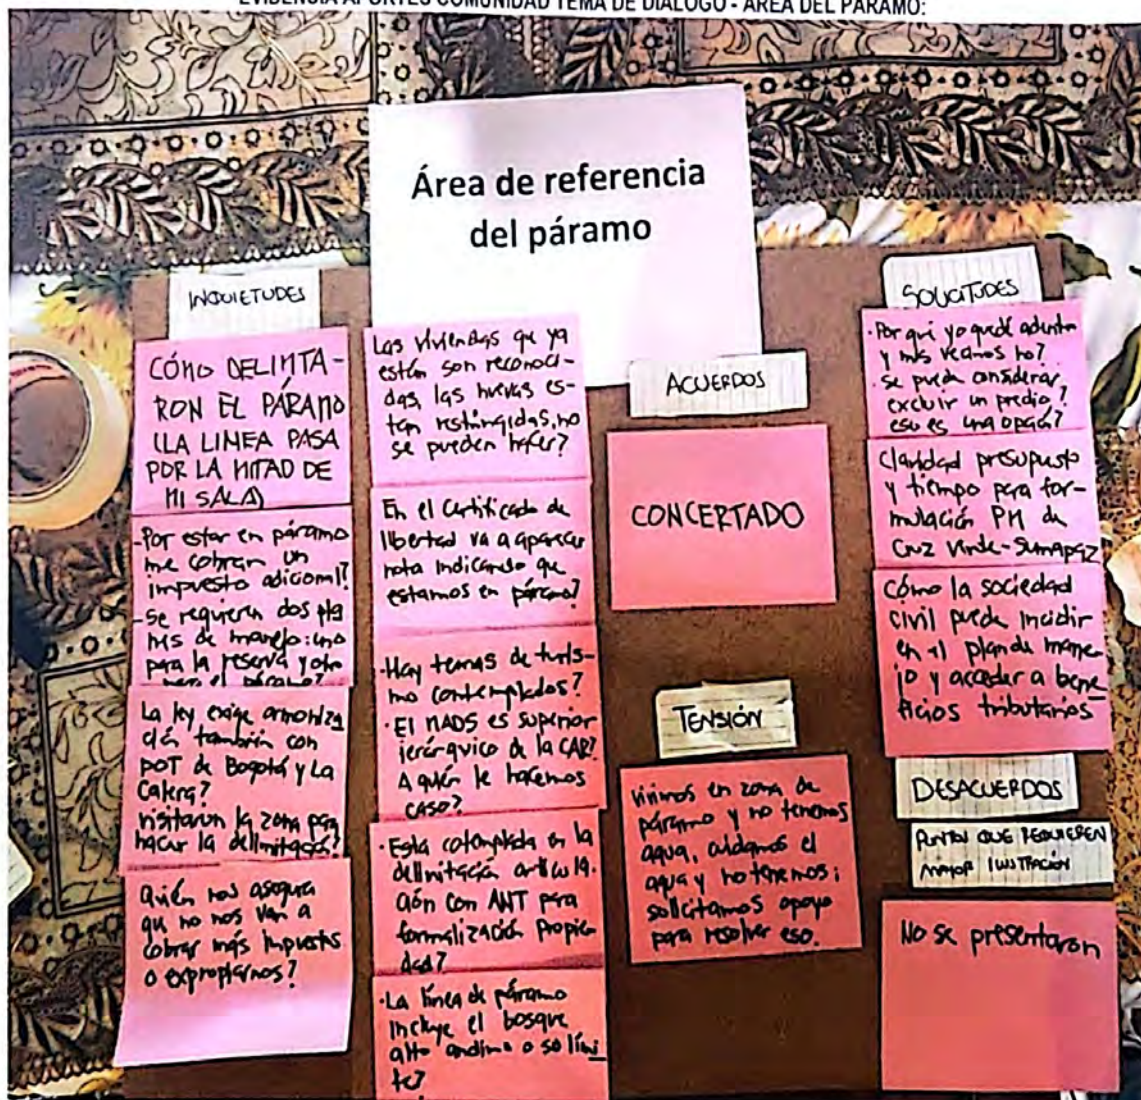 EVIDENCIA APORTES COMUNIDAD TEMA DE DIÁLOGO - ÁREA DEL PÁRAMO:
Área de referencia
del páramo
INQUIETUDES
CÓMO DELIMITA-
RON EL PÁRAMO
(LA LINEA PASA
POR LA MITAD DE
MI SALA)
-Por estar en páramo
me cobran un
impuesto adicional?
-Se requieren dos pla
nes de manejo: uno
para la reserva y otro
para el páramo?
La ley exige armoniza
ción también con
POT de Bogotá y La
Calera?
visitaron la zona para
hacer la delimitación?
Quién nos asegura
que no nos van a
cobrar más impuestos
o expropiarnos?
Las viviendas que ya
están son reconoci-
das, las nuevas es-
tan restringidas, no
se pueden hacer?
En el certificado de
libertad va a aparecer
nota indicando que
estamos en páramo?
-Hay temas de turis-
mo contemplados?
·El MADS es superior
jerárquico de la CAR?
A quién le hacemos
caso?
·Esta cotemplada en la
delimitación articula-
ción con ANT para
formalización propie-
dad?
·La línea de páramo
incluye el bosque
alto andino o su lími
te?
ACUERDOS
CONCERTADO
TENSIÓN
Vivimos en zona de
páramo y no tenemos
agua, cuidamos el
agua y no tenemos;
solicitamos apoyo
para resolver eso.
SOLICITUDES
·Por qué yo quedé adentro
y mis vecinos no?
·Se puede considerar
excluir un predio?
eso es una opción?
Claridad presupuesto
y tiempo para for-
mulación PM de
Cruz Verde-Sumapaz
Cómo la sociedad
civil puede incidir
en el plan de mane-
jo y acceder a bene
ficios tributarios
DESACUERDOS
PUNTOS QUE REQUIEREN
MAYOR ILUSTRACIÓN
No se presentaron